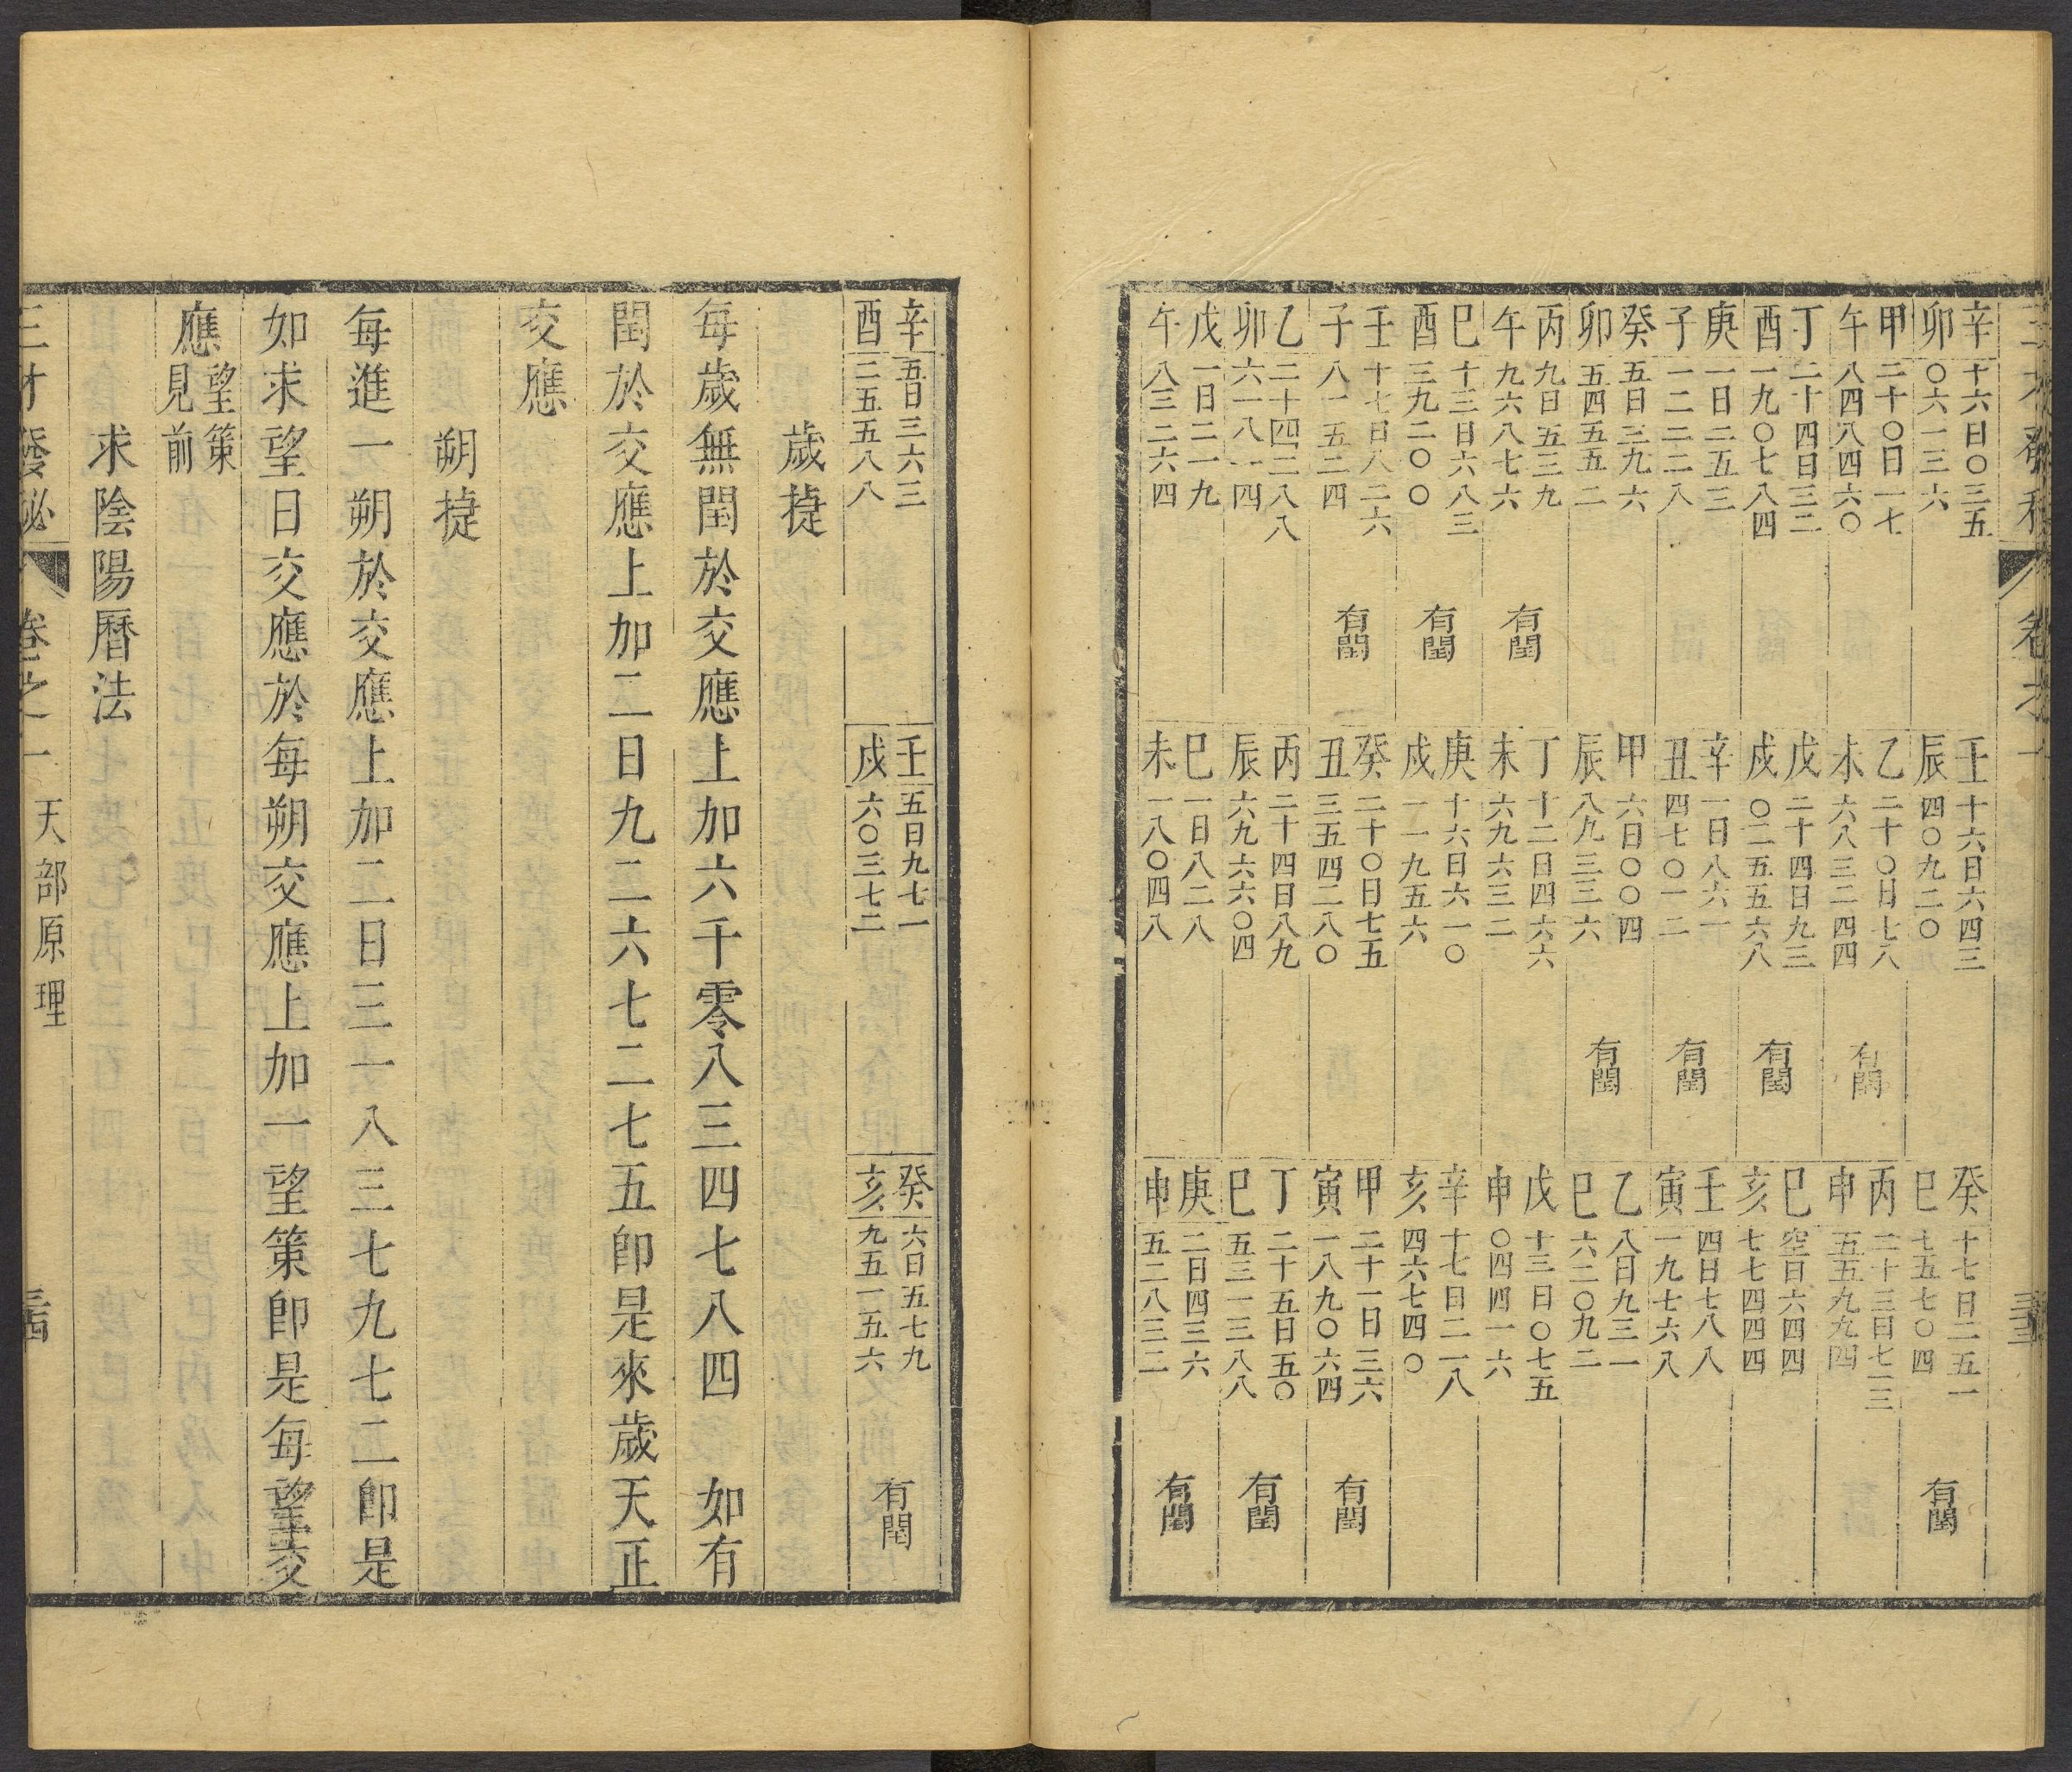 三才發秘 卷之一 三三
辛卯 十六日〇三五〇六一三六
壬辰 十六日六四三四〇九二〇
癸巳 十七日二五一七五七〇四 有閏
甲午 二十〇日一七八四八四六〇
乙未 二十〇日七八六八三二四四 有閏
丙申 二十三日七一三五五九九四
丁酉 二十四日三二一九〇七八四
戊戌 二十四日九三〇二五五六八 有閏
巳亥 空日六四四七七四四四
庚子 一日二五三一二二二八
辛丑 一日八六一四七〇一二 有閏
壬寅 四日七八八一九七六八
癸卯 五日三九六五四五五二
甲辰 六日〇〇四八九三三六 有閏
乙巳 八日九三一六二〇九二
丙午 九日五三九九六八七六 有閏
丁未 十二日四六六六九六三二
戊申 十三日〇七五〇四四一六
巳酉 十三日六八三三九二〇〇 有閏
庚戌 十六日六一〇一一九五六
辛亥 十七日二一八四六七四〇
壬子 十七日八二六八一五二四 有閏
癸丑 二十〇日七五三五四二八〇
甲寅 二十一日三六一八九〇六四 有閏
乙卯 二十四二八八六一八一四
丙辰 二十四日八九六九六六〇四
丁巳 二十五日五〇五三一三八八 有閏
戊午 一日二一九八三二六四
巳未 一日八二八一八〇四八
庚申 二日四三六五二八三二 有閏
辛酉 五日三六三二五五八八
壬戌 五日九七一六〇三七二
癸亥 六日五七九九五一五六 有閏
歲㨗
每歲無閏於交應上加六千零八三四七八四 如有
閏於交應上加二日九二六七二七五卽是來歲天正
交應
朔㨗
每進一朔於交應上加二日三一八三七九七二卽是
如求望日交應於每朔交應上加一望策卽是每望交
應 望策見前
求陰陽曆法
三才發秘 卷之一 天部原理 三四